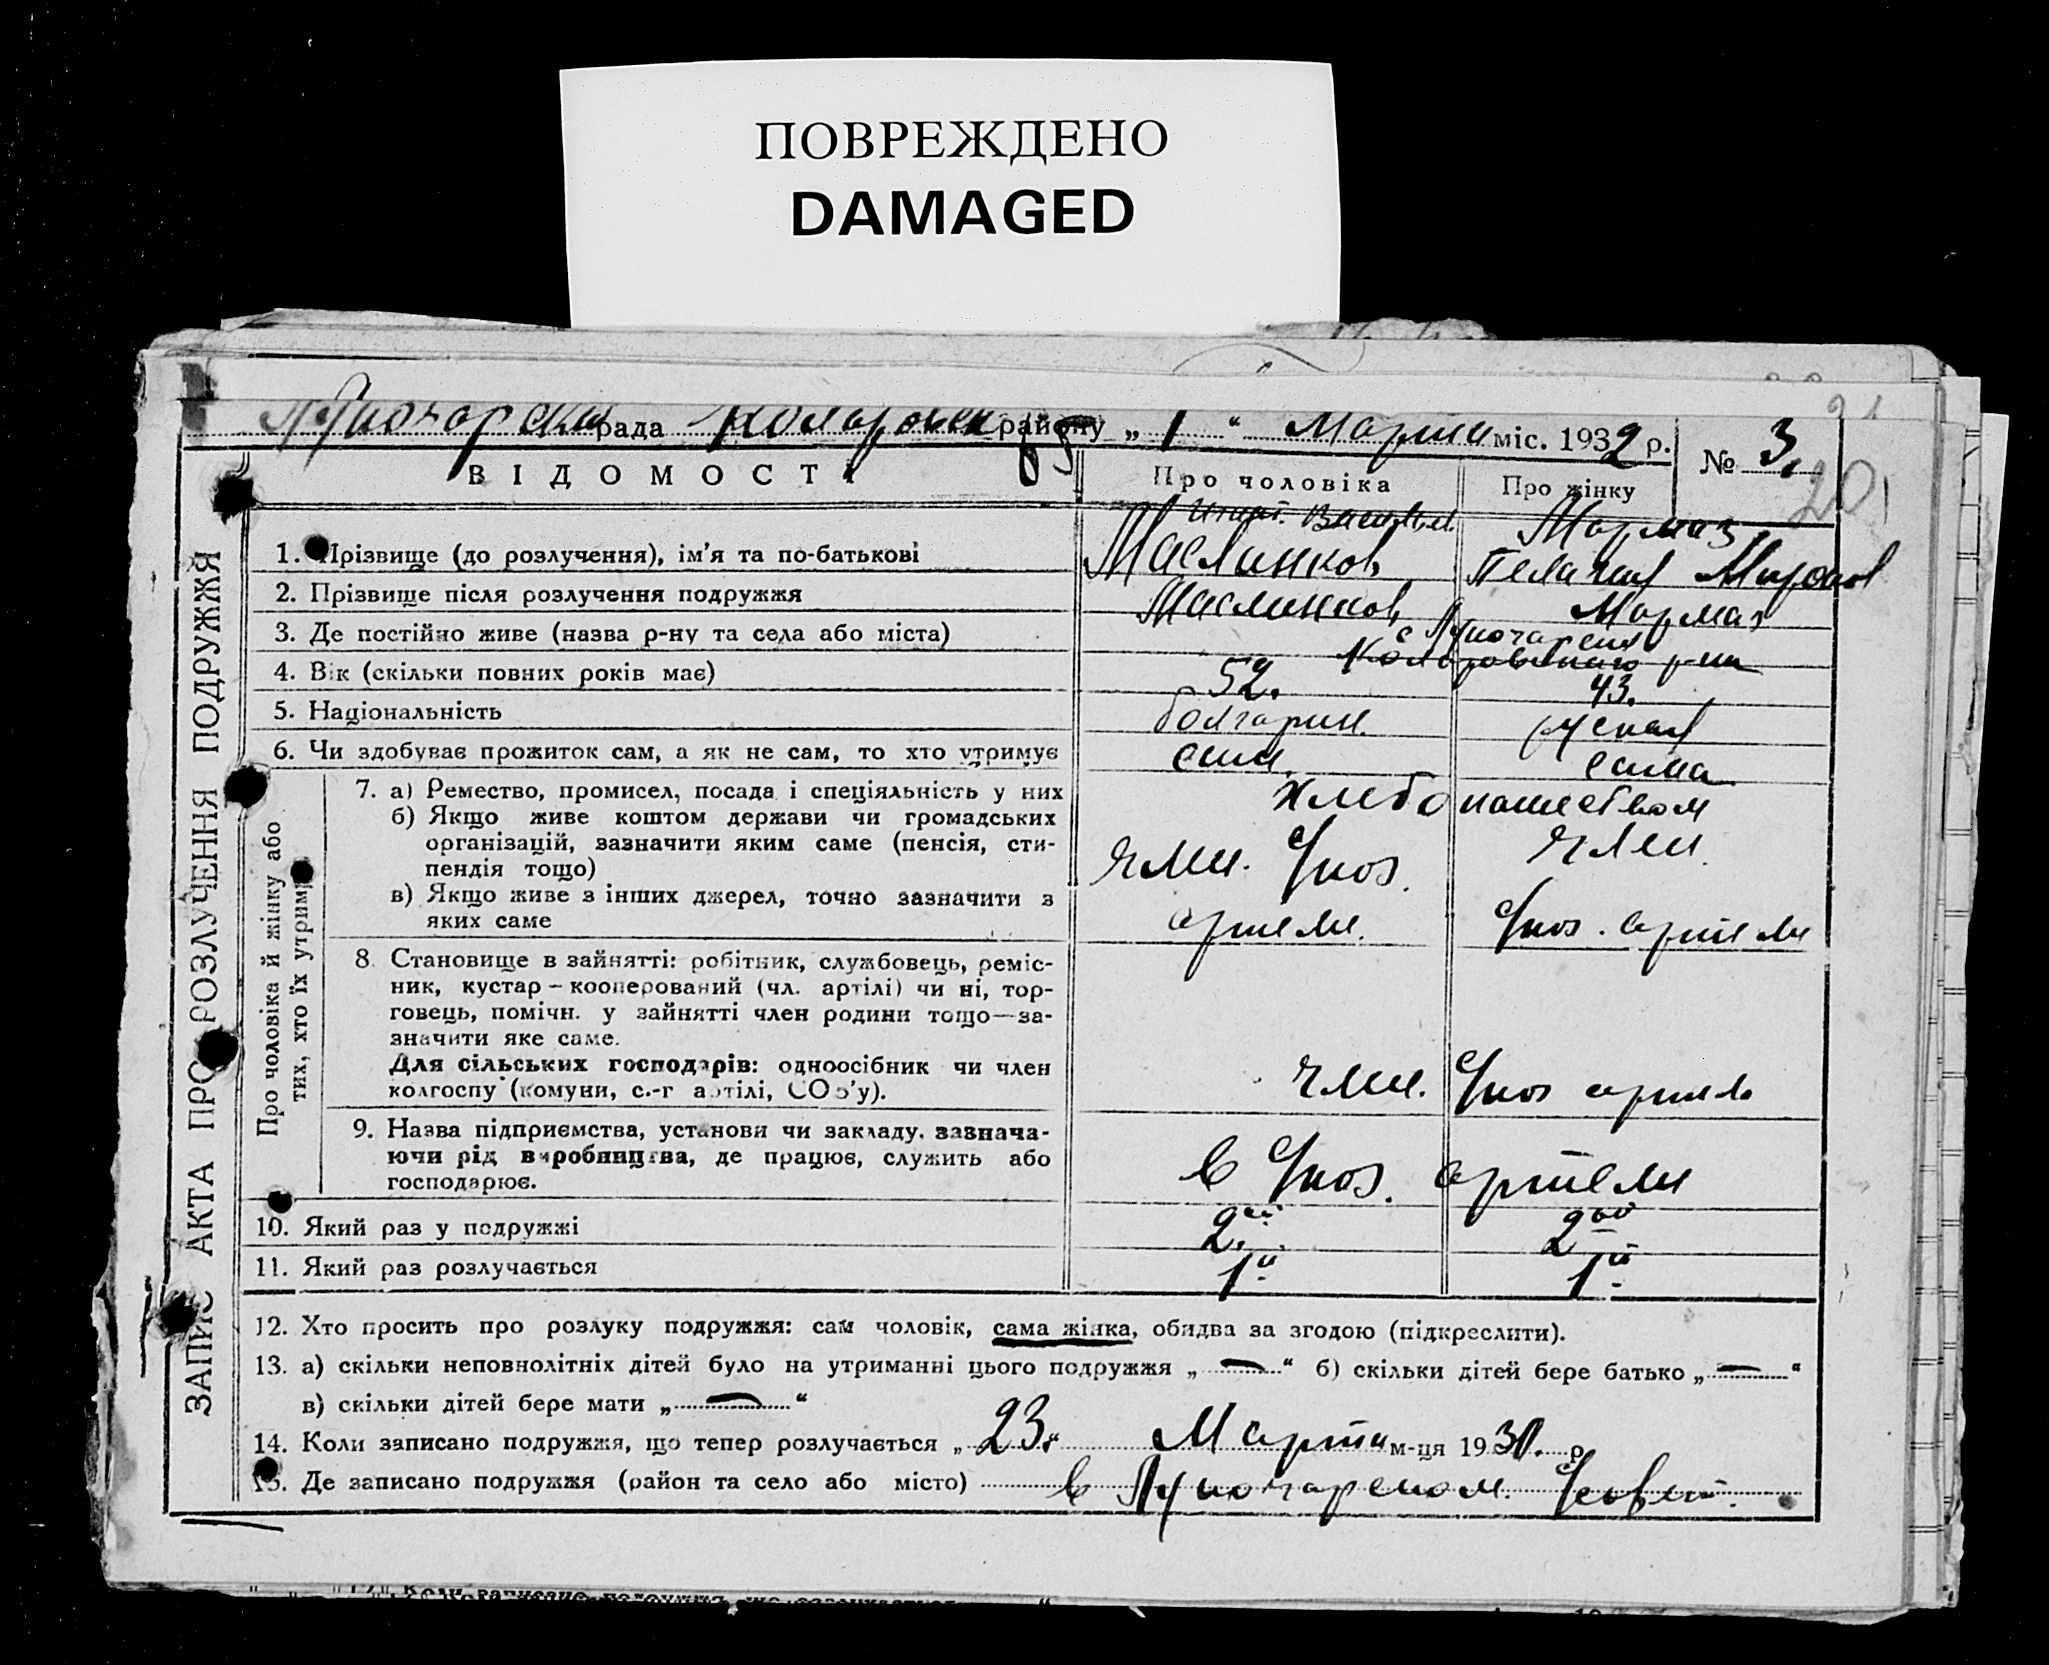 ПОВРЕЖДЕНО
DAMAGED
рада районy „ 1 “ Марта міс. 1932 р.
№ 3.
20
ВІДОМОСТІ
Про чоловіка
Про жінку
1. Прізвище (до розлучення), ім'я та по-батькові
Маслинков
Мармаз
Пелагея Миронов
2. Прізвище після розлучення подружжя
Маслинков
Мармаз
3. Де постійно живе (назва р-ну та села або міста)
с Луночарск
Коларовского р-на
4. Вік (скільки повних років має)
52.
43.
5. Національність
болгарин.
руская
6. Чи здобуває прожиток сам, а як не сам, то хто утримує
сам
сама
Про чоловіка й жінку або
тих, хто їх утрим
7. а) Ремество, промисел, посада і спеціяльність у них
б) Якщо живе коштом держави чи громадських
організацій, зазначити яким саме (пенсія, сти-
пендія тощо)
в) Якщо живе з інших джерел, точно зазначити з
яких саме
хлебопашеством
член. с/хоз.
артели.
член.
с/хоз. артели
8. Становище в зайнятті: робітник, службовець, реміс-
ник, кустар – кооперований (чл. артілі) чи ні, тор-
говець, помічн. у зайнятті член родини тощо—за-
значити яке саме.
Для сільських господарів: одноосібник чи член
колгоспу (комуни, с.-г артілі, СОЗ'у).
член. с/хоз артель
9. Назва підприємства, установи чи закладу, зазнача-
ючи рід виробництва, де працює, служить або
господарює.
в с/хоз. артели
10. Який раз у подружжі
2ой
2ой
11. Який раз розлучається
1й
1й
12. Хто просить про розлуку подружжя: сам чоловік, сама жінка, обидва за згодою (підкреслити).
13. а) скільки неповнолітніх дітей було на утриманні цього подружжя „ — “ б) скільки дітей бере батько „ — “
в) скільки дітей бере мати „ — “
14. Коли записано подружжя, що тепер розлучається „ 23 “ Марта м-ця 1930. р.
15. Де записано подружжя (район та село або місто) в Луночарском. Совет.
ЗАПИС АКТА ПРО РОЗЛУЧЕННЯ ПОДРУЖЖЯ